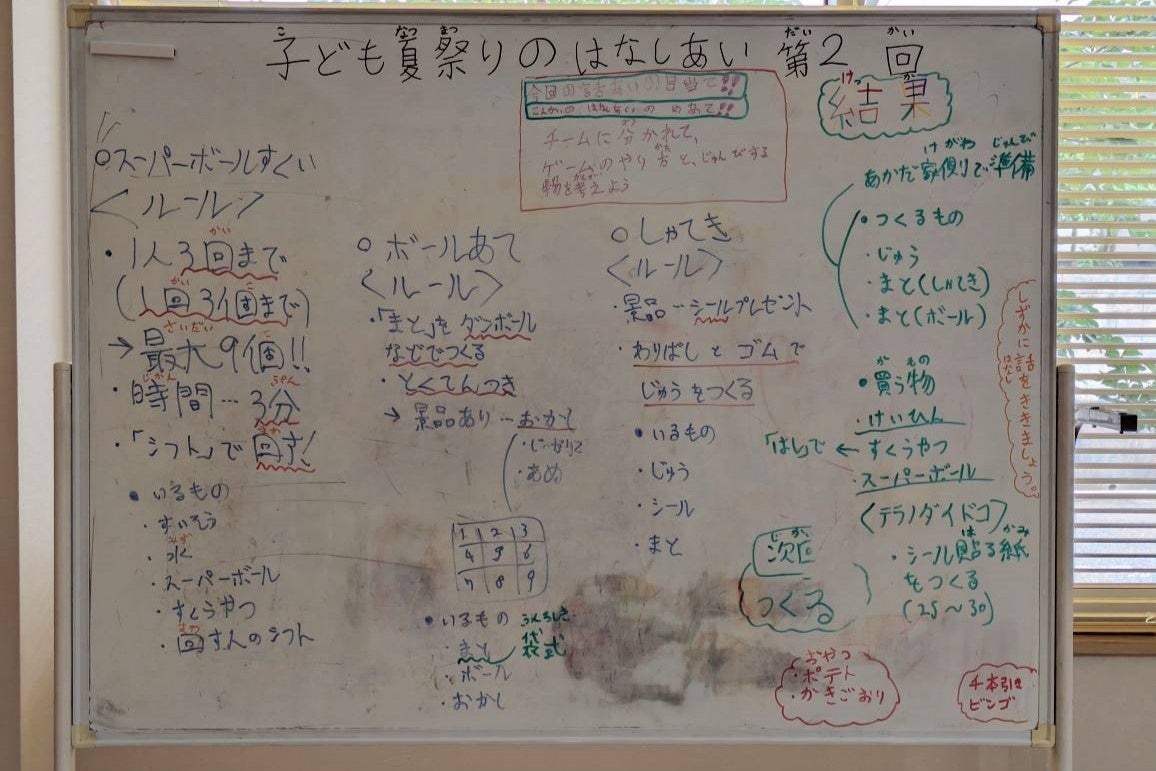 子ども夏祭りのはなしあい 第2回
なつ まつ だい かい
今回の話きあいの目当て!!
こんかいの はなしあいの めあて!!
チームに分かれて、
ゲームのやり方と、じゅんびする
物を考えよう
○スーパーボールすくい
<ルール>
・1人3回まで
(1回3個まで)
→最大9個!!
・時間…3分
・「シフト」で回す!
●いるもの
・すいそう
・水
・スーパーボール
・すくうやつ
・回す人のシフト
○ボールあて
<ルール>
・「まと」をダンボール
などでつくる
・とくてんつき
→景品あり…おかし
・じゃがりこ
・あめ
1 2 3
4 5 6
7 8 9
●いるもの
・まと 袋式
・ボール
・おかし
○しゃてき
<ルール>
・景品…シールプレゼント
・わりばしとゴムで
じゅうをつくる
●いるもの
・じゅう
・シール
・まと
結果
けっ か
けがわ じゅんび
あかだ家側で準備
●つくるもの
・じゅう
・まと(しゃてき)
・まと(ボール)
か もの
●買う物
・けいひん
「はし」で ← すくうやつ
・スーパーボール
<テラノダイドコ>
は かみ
・シール貼る紙
をつくる
(25~30)
しずかに話をききましょう。
じかい
次回
つくる
おやつ
・ポテト
・かきごおり
千本引き
ビンゴ